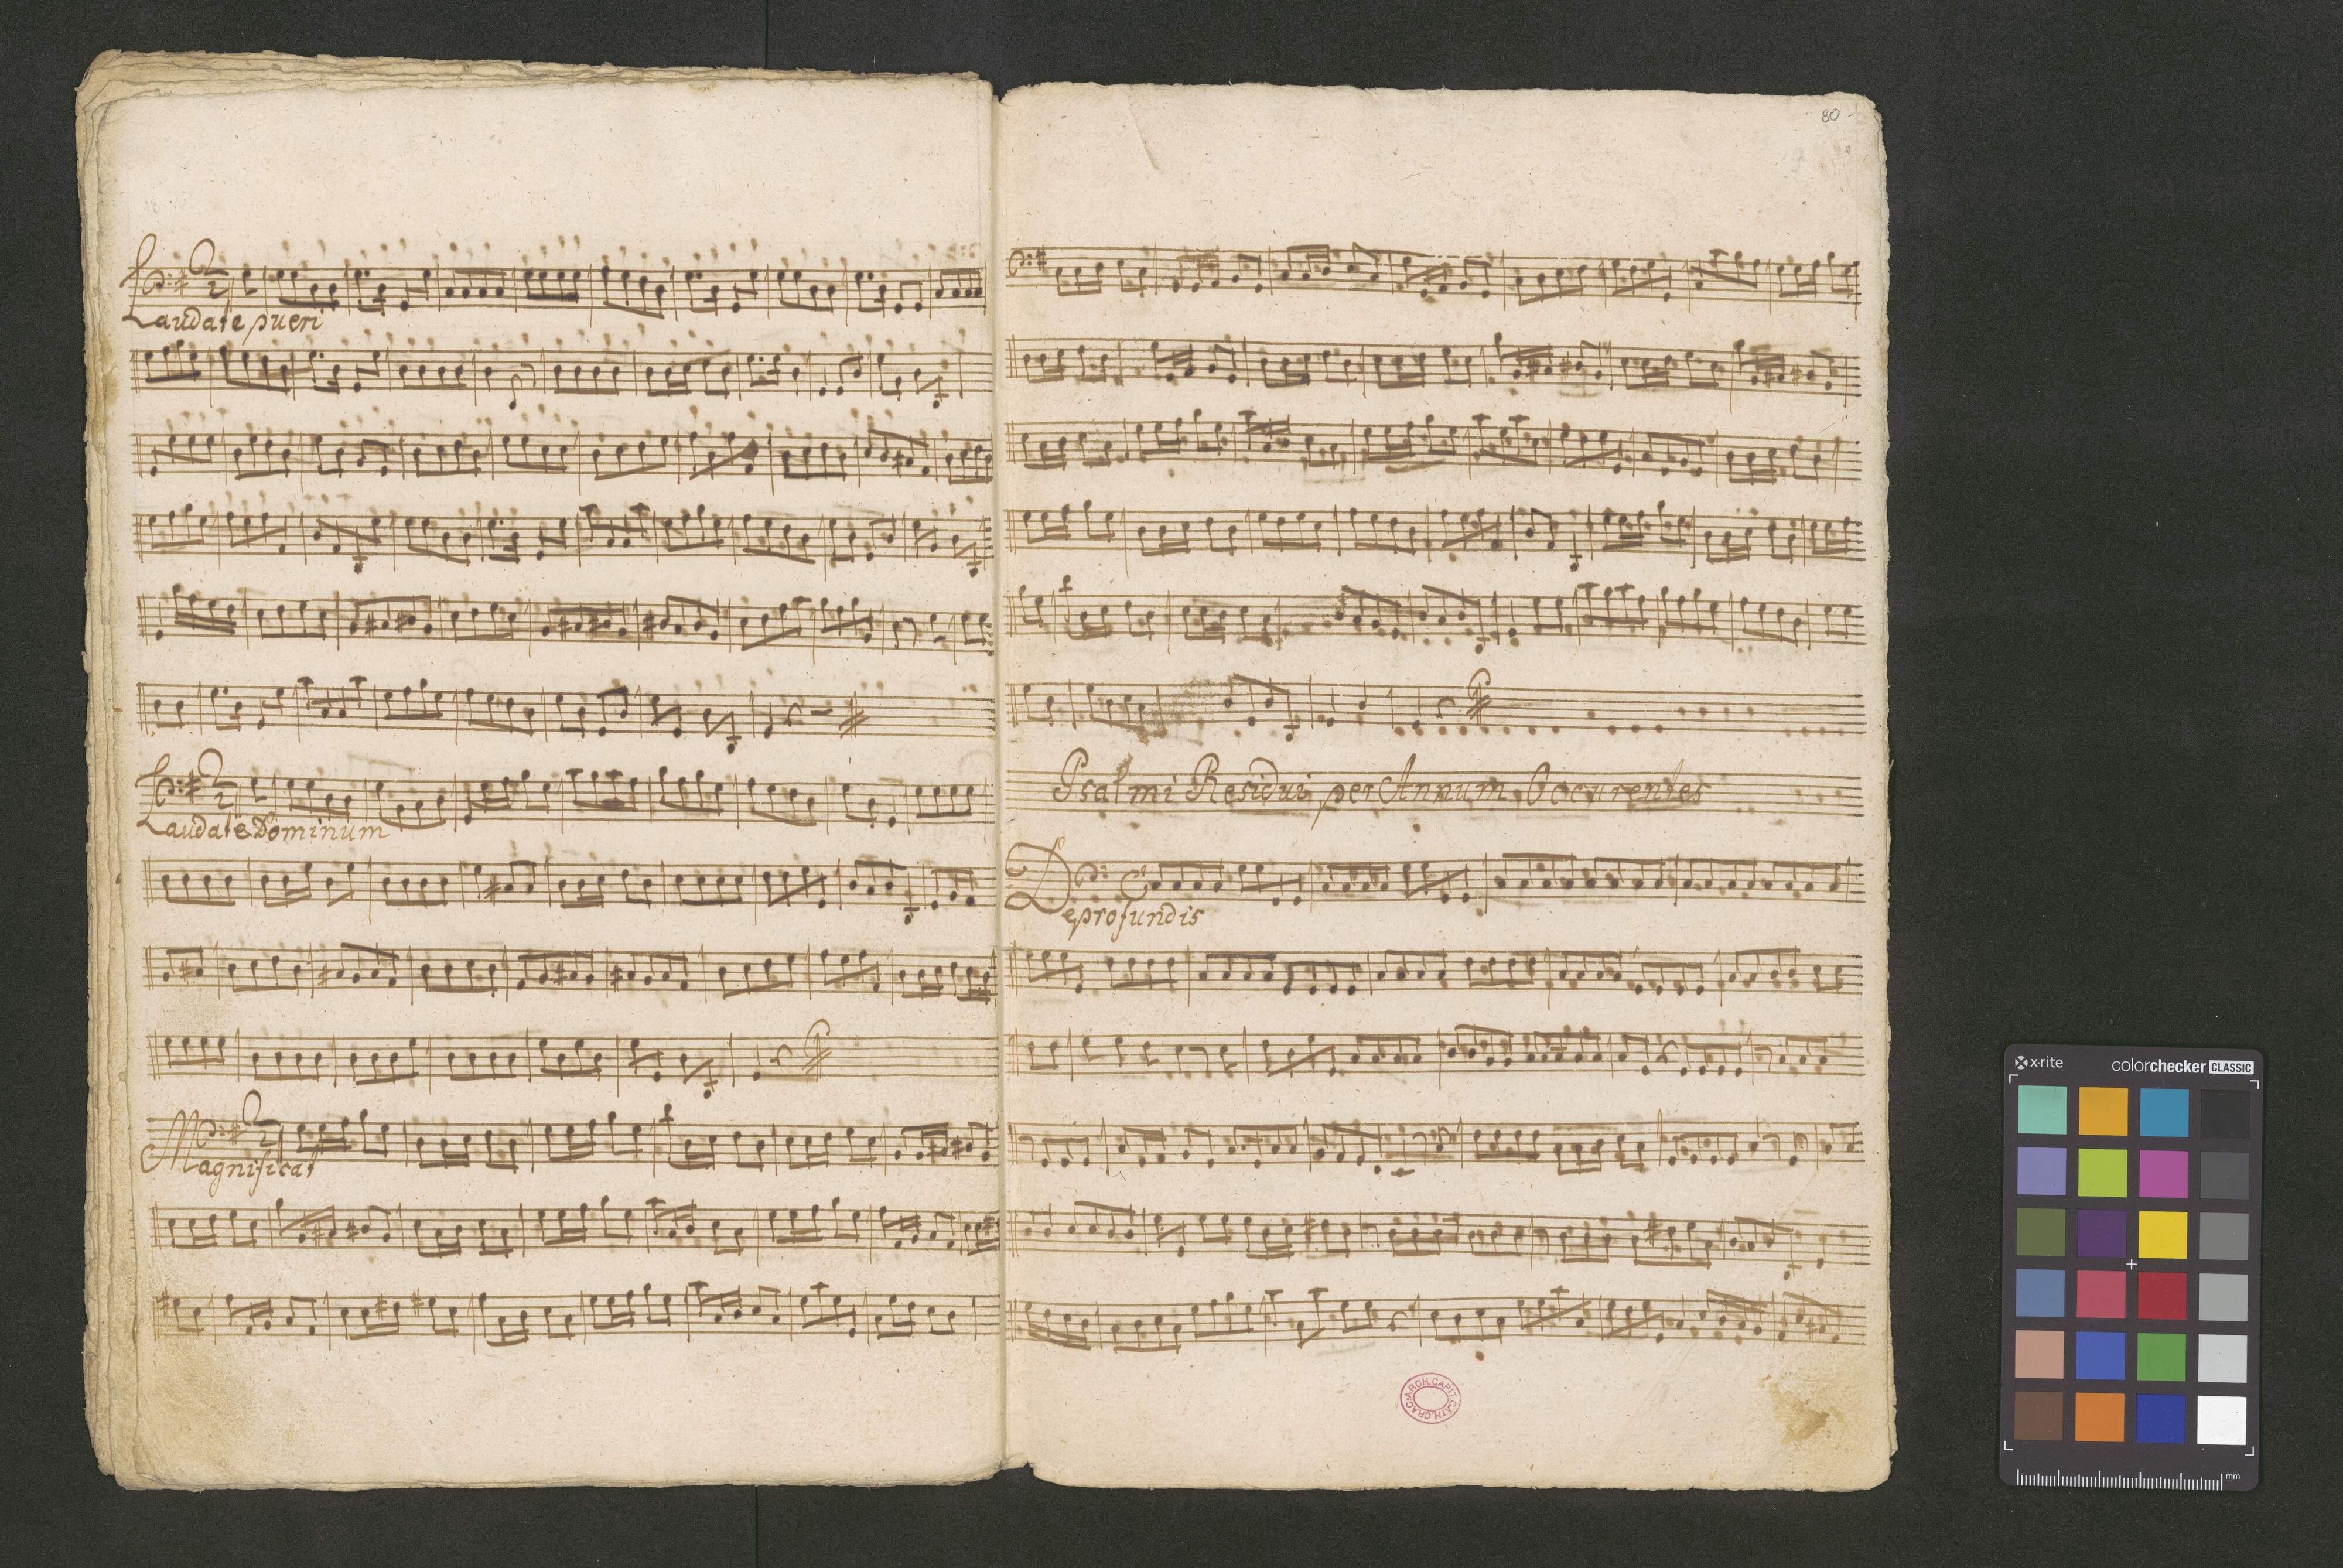 Laudate pueri
Laudate Dominum
Magnificat
80
Psalmi Residui per Annum Occurentes
De profundis
ARCH. CAPIT. CATH. CRAC.
x-rite
colorchecker CLASSIC
mm